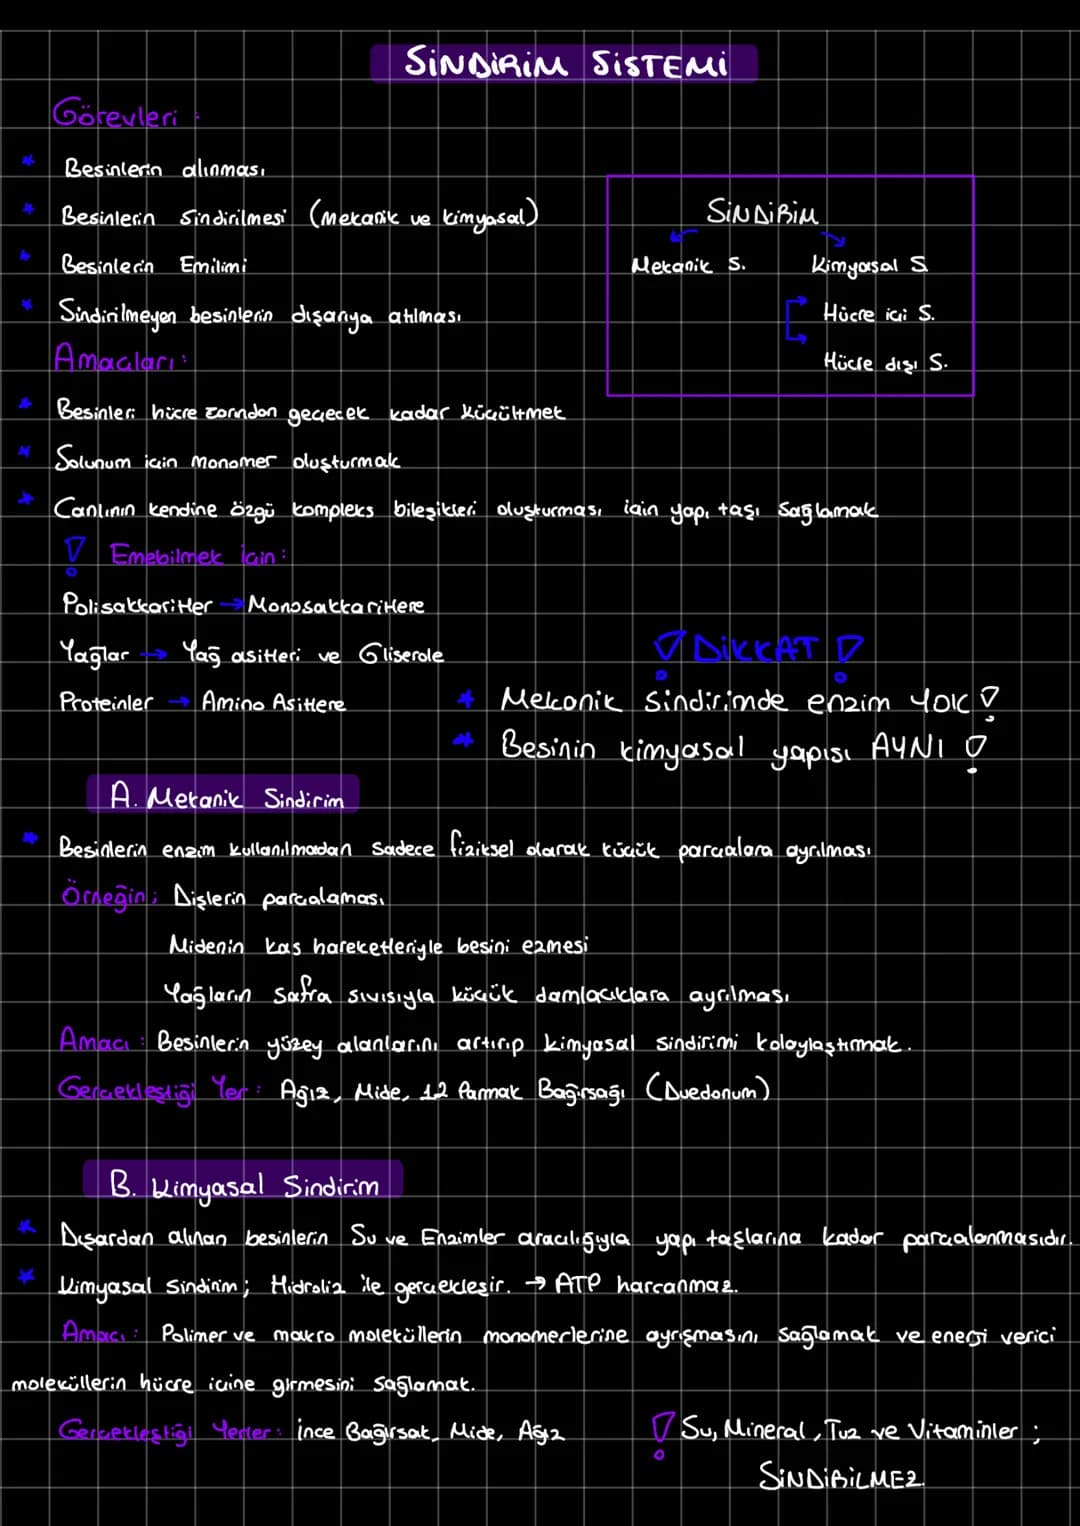 SİNDİRİM SİSTEMİ
Görevleri :
Besinlerin alınması
Besinlerin Sindirilmesi (Mekanik ve kimyasal)
Besinlerin Emilimi
Sindirilmeyen besinlerin dışarıya atılması
SİNDİRİM
Mekanik S. Kimyasal S
Hücre içi S.
Hücre dışı S.
Amaçları :
Besinleri hücre zarından geçecek kadar küçültmek
Solunum için monomer oluşturmak
Canlının kendine özgü kompleks bileşikleri oluşturması için yapı taşı Sağlamak
! Emebilmek İçin :
Polisakkaritler → Monosakkaritlere
Yağlar → Yağ asitleri ve Gliserole
Proteinler → Amino Asitlere
! DİKKAT !
Mekanik Sindirimde enzim YOK !
Besinin kimyasal yapısı AYNI !
A. Mekanik Sindirim
Besinlerin enzim kullanılmadan sadece fiziksel olarak küçük parçalara ayrılması
Örneğin ; Dişlerin parçalaması
Midenin kas hareketleriyle besini ezmesi
Yağların Safra sıvısıyla küçük damlacıklara ayrılması
Amacı : Besinlerin yüzey alanlarını artırıp kimyasal sindirimi kolaylaştırmak.
Gerçekleştiği Yer : Ağız, Mide, 12 Parmak Bağırsağı (Duedonum)
B. Kimyasal Sindirim
Dışardan alınan besinlerin Su ve Enzimler aracılığıyla yapı taşlarına kadar parçalanmasıdır.
Kimyasal Sindirim ; Hidroliz ile gerçekleşir. → ATP harcanmaz.
Amacı : Polimer ve makro moleküllerin monomerlerine ayrışmasını sağlamak ve enerji verici
moleküllerin hücre içine girmesini Sağlamak.
Gerçekleştiği Yerler : İnce Bağırsak, Mide, Ağız
! Su, Mineral, Tuz ve Vitaminler ;
SİNDİRİLMEZ.